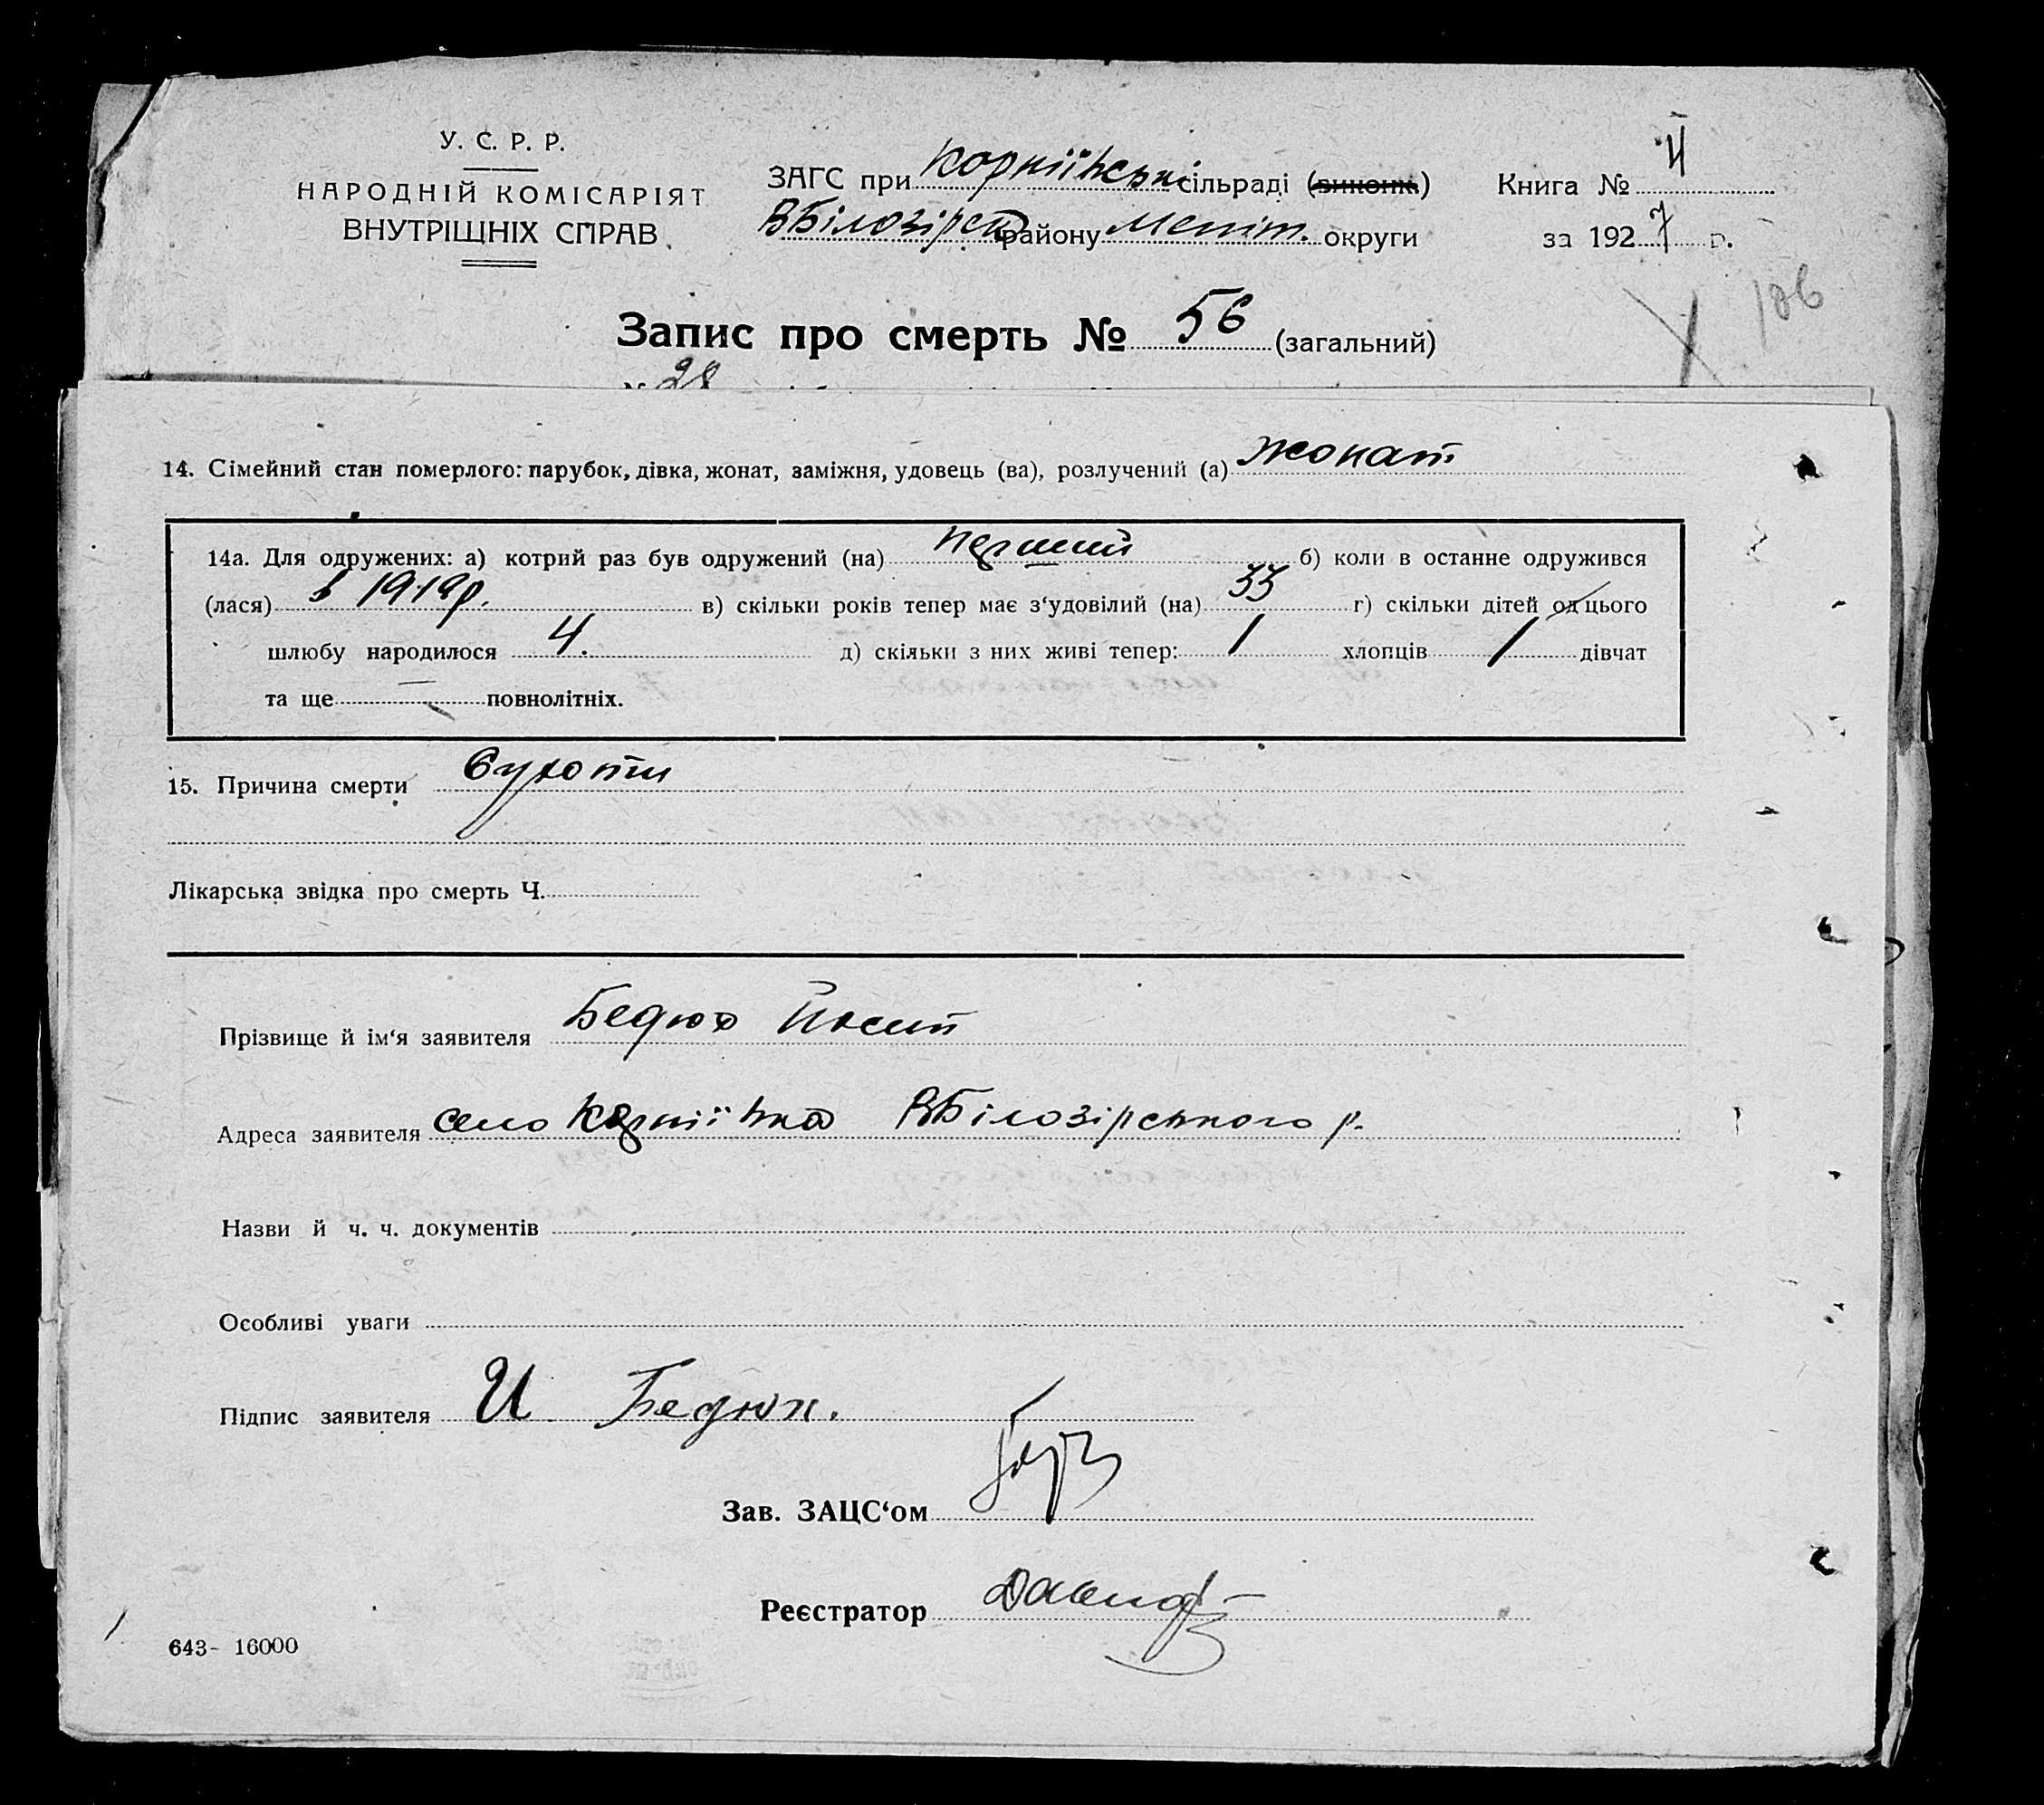 У. С. Р. Р.
НАРОДНІЙ КОМІСАРІЯТ
ВНУТРІШНІХ СПРАВ
ЗАГС при Корніївській сільраді (виконк)
ВБілозірсь району Меліт. округи
Книга № 4
за 1927 р.
106
Запис про смерть № 56 (загальний)
28
14. Сімейний стан померлого: парубок, дівка, жонат, заміжня, удовець (ва), розлучений (а) жонат
14а. Для одружених: а) котрий раз був одружений (на) перший б) коли в останне одружився
(лася) в 1919р. в) скільки років тепер має з‘удовілий (на) 33 г) скільки дітей од цього
шлюбу народилося 4. д) скільки з них живі тепер: 1 хлопців 1 дівчат
та ще — повнолітніх.
15. Причина смерти Сухоти
Лікарська звідка про смерть Ч.
Прізвище й ім‘я заявителя Бедюх Йосип
Адреса заявителя село Корніївка ВБілозірського р.
Назви й ч. ч. документів
Особливі уваги
Підпис заявителя И Бедюх.
Зав. ЗАЦС‘ом
Реєстратор
643- 16000